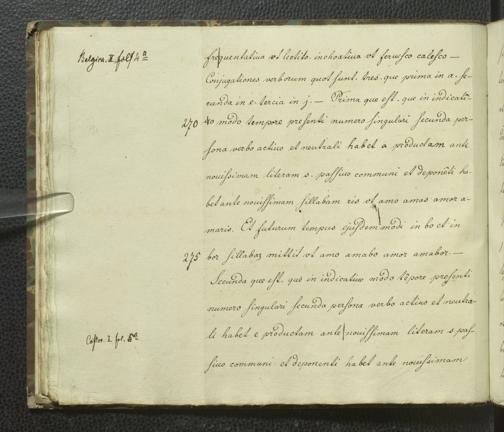 Belgica. II fol. 4 a
frequentatiua vt lectito. inchoatiua vt feruesco calesco —
Conjugationes verborum quot sunt. tres. que prima in a. se-
cunda in e. tercia in j. — Prima que est. que in indicati-
270 vo modo tempore presenti numero singulari secunda per-
sona verbo actiuo et neutrali habet a productam ante
nouissimam literam s. passiuo communi et deponẽti ha-
bet ante nouissimam sillabam ris vt amo amas amor a-
maris. Et futurum tempus ejusdem modi in bo et in
275 bor sillabas mittit vt amo amabo amor amabor. —
Secunda que est. que in indicatiuo modo tẽpore presenti
numero singulari secunda persona verbo actiuo et neutra-
Costor. I. fol. 5 a
li habet e productam ante nouissimam literam s pas-
siuo communi et deponenti habet ante nouissimam